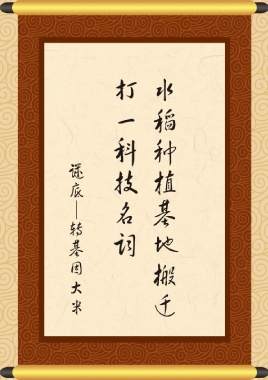 水稻种植基地搬迁
打一科技名词
谜底——转基因大米